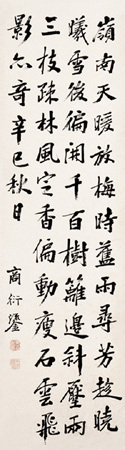 嶺南天暖放梅時舊雨尋芳趁曉
曦雪後徧開千百樹籬邊斜壓兩
三枝疎林風定香偏動瘦石雲飛
影亦奇辛巳秋日
商衍鎏